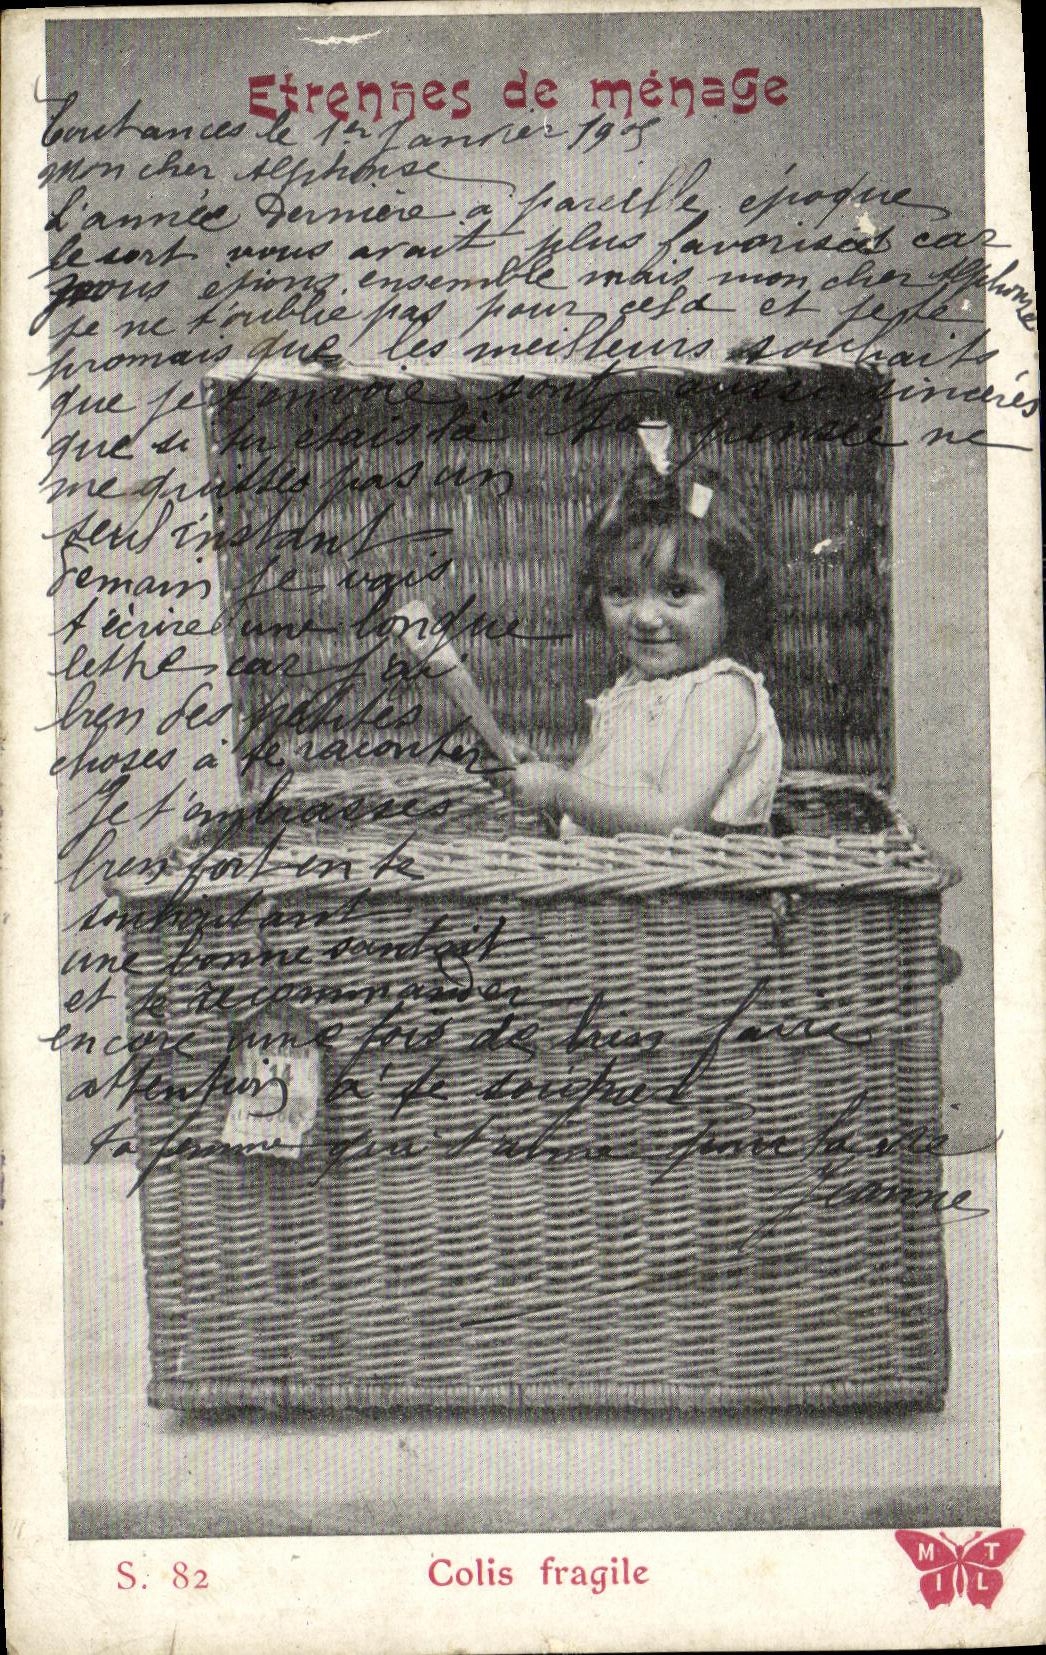 Etrennes de ménage
Coutances le 1er Janvier 1905
Mon cher Alphonse
L'année Dernière à pareille époque
le sort vous avait plus favorisés car
nous étions ensemble mais mon cher Alphonse
je ne t'oublie pas pour cela et je te
promais que les meilleurs souhaits
que je t'envoie sont aussi sincères
que si tu étais là ta pensée ne
me quittes pas un
seul instant
demain je vais
t'écrire une longue
lettre car j'ai
bien des petites
choses à te raconter
Je t'embrasses
bien fort en te
souhaitant
une bonne santait
et te recommander
encore une fois de bien faire
attention à te soigner
ta femme qui t'aime pour la vie
Jeanne
S. 82
Colis fragile
M T
I L